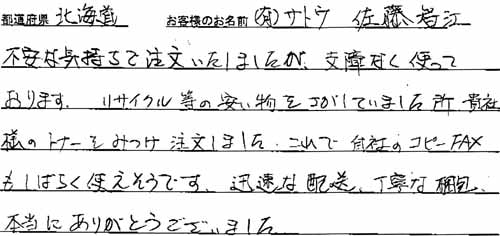 都道府県 北海道 お客様のお名前 (有)サトウ 佐藤 岩江
不安な気持ちで注文いたしましたが、支障なく使って
おります。リサイクル等の安い物をさがしていました所 貴社
様のトナーをみつけ注文しました。これで自社のコピーFAX
もしばらく使えそうです。迅速な配送、丁寧な梱包、
本当にありがとうございました